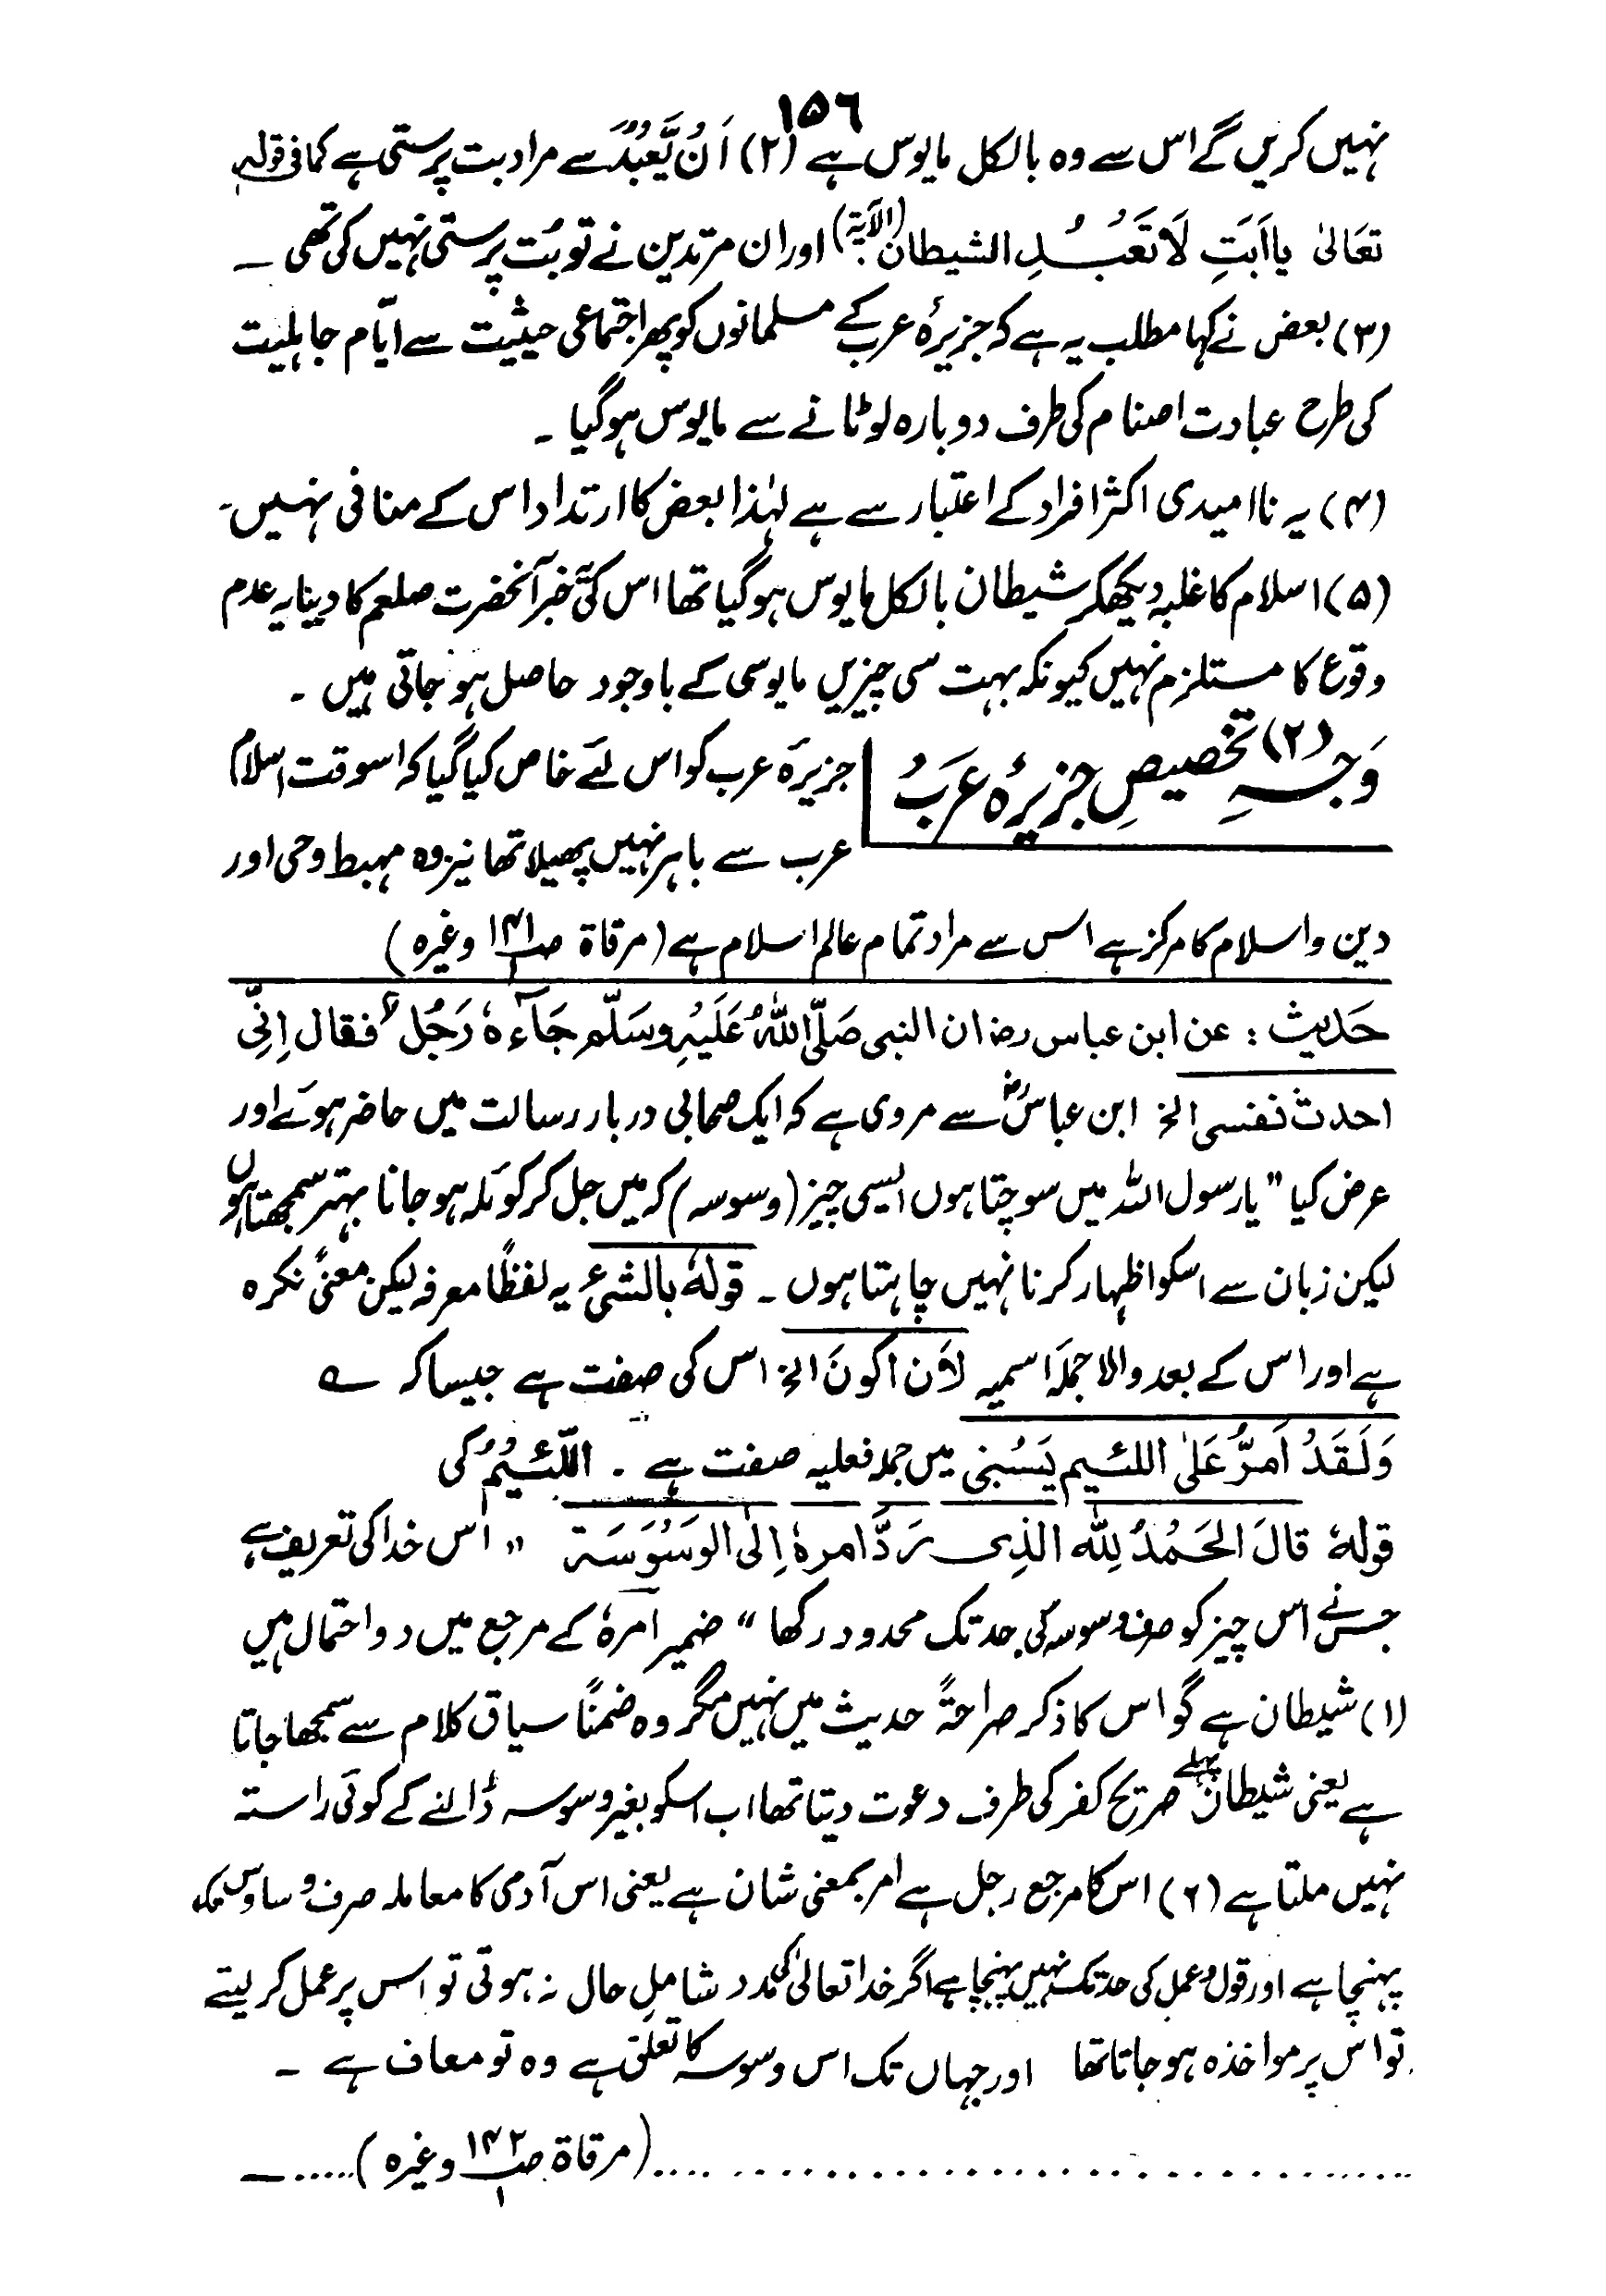 ۱۵۶
نہیں کریں گے اس سے وہ بالکل مایوس ہے (۲) اَنْ یَّعْبُدَ سے مراد بت پرستی ہے کما فی قولہ
تعَالیٰ یااَبَتِ لَا تَعْبُدِ الشیطان (الآیة) اور ان مرتدین نے تو بُت پرستی نہیں کی تھی ۔
(۳) بعض نے کہا مطلب یہ ہے کہ جزیرۂ عرب کے مسلمانوں کو پھر اجتماعی حیثیت سے ایّام جاہلیت
کی طرح عبادت اصنام کی طرف دوبارہ لوٹانے سے مایوس ہوگیا ۔
(۴) یہ ناامیدی اکثر افراد کے اعتبار سے ہے لہٰذا بعض کا ارتداد اس کے منافی نہیں۔
(۵) اسلام کا غلبہ دیکھکر شیطان بالکل مایوس ہوگیا تھا اس کی خبر آنحضرت صلعم کا دینا یہ عدم
وقوع کا مستلزم نہیں کیونکہ بہت سی چیزیں مایوسی کے باوجود حاصل ہوجاتی ہیں ۔
(۲) وَجہِ تخصیصِ جزیرۂ عرَبْ جزیرۃ عرب کو اس لئے خاص کیا گیا کہ اسوقت اسلام
عرب سے باہر نہیں پھیلا تھا نیز وہ مہبط وحی اور
دین واسلام کا مرکز ہے اس سے مراد تمام عالم اسلام ہے (مرقاۃ صـ۱۴۱/۱ وغیرہ)
حَدیث : عن ابن عباس رضـ ان النبی صَلّی اللہُ عَلَیْہِ وسَلّم جَآءہٗ رَجُلٌ فقال اِنِّی
احدث نفسی الخ ابن عباسؓ سے مروی ہے کہ ایک صحابی دربار رسالت میں حاضر ہوئے اور
عرض کیا ” یا رسول اللہ میں سوچتا ہوں ایسی چیز (وسوسہ) کہ میں جل کر کوئلہ ہوجانا بہتر سمجھتا ہوں
لیکن زبان سے اسکو اظہار کرنا نہیں چاہتا ہوں ۔ قولہٗ بالشیء یہ لفظًا معرفہ لیکن معنیً نکرہ
ہے اور اس کے بعد والا جملۂ اسمیہ لاَن اکونَ الخ اس کی صفت ہے جیسا کہ ؎
وَلَقَدْ اَمرُّ عَلیٰ اللئیم یَسُبنی میں جملہ فعلیہ صفت ہے ۔ اللَّئِیْمُ کی
قولہٗ قالَ الحَمْدُ لِلّٰہ الذِی رَدَّ امرہٗ اِلیَ الوَسْوَسَة ” اس خدا کی تعریف ہے
جس نے اس چیز کو صرف وسوسہ کی حد تک محدود رکھا “ ضمیر امرہٗ کے مرجع میں دو احتمال ہیں
(۱) شیطان ہے گو اس کا ذکر صراحۃً حدیث میں نہیں مگر وہ ضمنًا سیاق کلام سے سمجھا جاتا
ہے یعنی شیطان پہلے صریح کفر کی طرف دعوت دیتا تھا اب اسکو بغیر وسوسہ ڈالنے کے کوئی راستہ
نہیں ملتا ہے (۲) اس کا مرجع رجل ہے امر بمعنی شان ہے یعنی اس آدمی کا معاملہ صرف وساوس تک
پہنچا ہے اور قول وعمل کی حد تک نہیں پہنچا ہے اگر خدا تعالیٰ کی مدد شاملِ حال نہ ہوتی تو اس پر عمل کرلیتے
تو اس پر مواخذہ ہوجاتا تھا اور جہاں تک اس وسوسہ کا تعلق ہے وہ تو معاف ہے ۔
(مرقاۃ صـ۱۴۲/۱ وغیرہ)